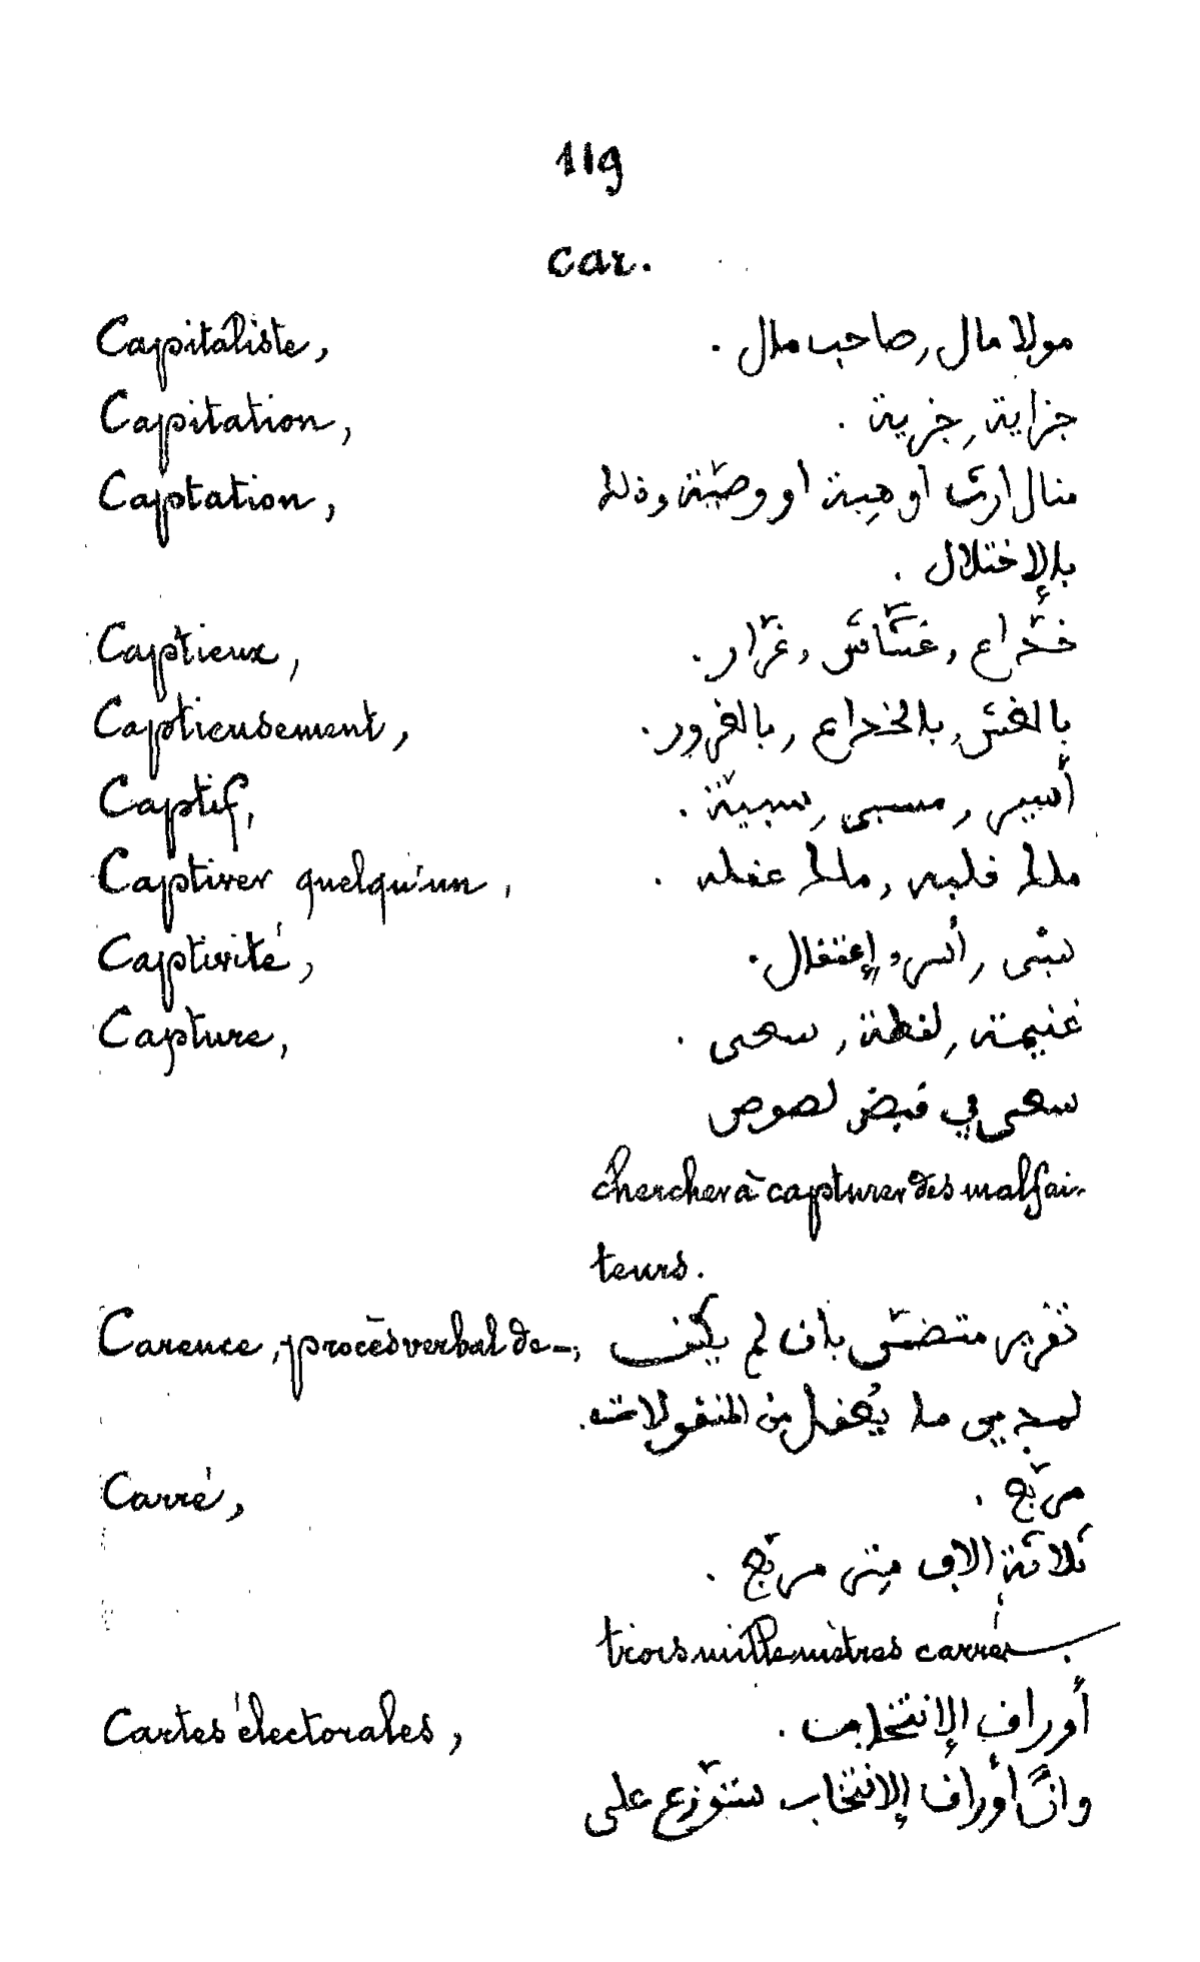 119
car.
Capitaliste, مولا مال, صاحب مال .
Capitation, جزاية, جزية .
Captation, منال ارث أو هبة أو وصيّة وذلك
بالإختلال .
Captieux, خدّاع, غشّاش, غرّار .
Captieusement, بالغش, بالخداع, بالغرور .
Captif, أسير, مسبي, سبيّة .
Captiver quelqu'un, ملك قلبه, ملك عقله .
Captivité, سبْي, أسر, إعتقال .
Capture, غنيمة, لقطة, سعى .
سعى في قبض لصوص
chercher à capturer des malfai-
teurs.
Carence, procès verbal de —, تقرير متضمّن بان لم يكن
لمديون ما يُعقل من المنقولات .
Carré, مربّع .
ثلاثة الاف متر مربّع .
trois mille mètres carrés.
Cartes électorales, أوراق الإنتخاب .
وانّ أوراق الإنتخاب ستتوّزع على